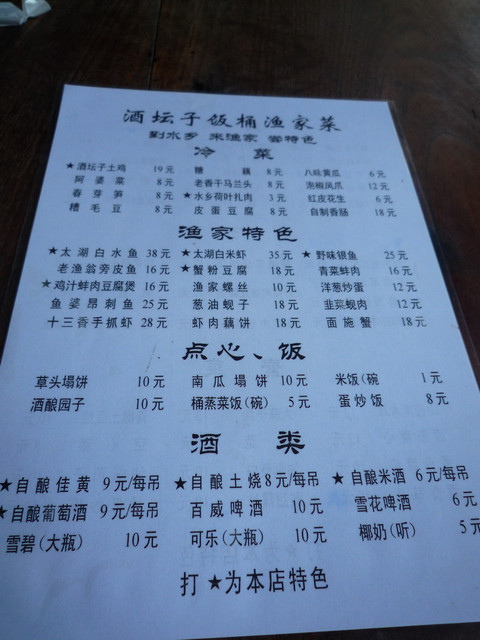 酒坛子饭桶渔家菜
到水乡 来渔家 尝特色
冷 菜
★酒坛子土鸡 19元 糖藕 8元 八味黄瓜 6元
阿婆菜 8元 老香干马兰头 8元 泡椒凤爪 12元
春芽笋 8元 ★水乡荷叶扎肉 3元 红皮花生 6元
糟毛豆 8元 皮蛋豆腐 8元 自制香肠 18元
渔家特色
★太湖白水鱼 38元 ★太湖白米虾 35元 ★野味银鱼 25元
老渔翁旁皮鱼 16元 ★蟹粉豆腐 18元 青菜蚌肉 16元
★鸡汁蚌肉豆腐煲 16元 渔家螺丝 10元 洋葱炒蛋 12元
鱼婆昂刺鱼 25元 葱油蚬子 18元 韭菜蚬肉 12元
十三香手抓虾 28元 虾肉藕饼 18元 面施蟹 18元
点心、饭
草头塌饼 10元 南瓜塌饼 10元 米饭(碗 1元
酒酿园子 10元 桶蒸菜饭(碗) 5元 蛋炒饭 8元
酒 类
★自酿佳黄 9元/每吊 ★自酿土烧 8元/每吊 ★自酿米酒 6元/每吊
★自酿葡萄酒 9元/每吊 百威啤酒 10元 雪花啤酒 6元
雪碧(大瓶) 10元 可乐(大瓶) 10元 椰奶(听) 5元
打 ★为本店特色